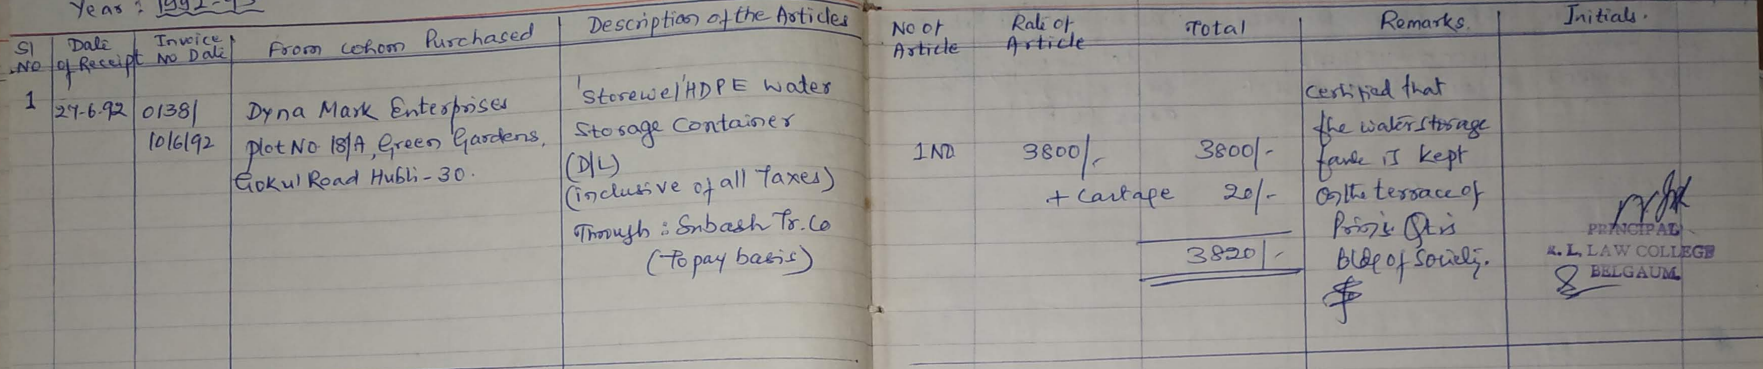 Year: 1992-93
Sl No
Date of Receipt
Invoice No Date
From whom Purchased
Description of the Articles
No of Article
Rate of Article
Total
Remarks.
Initials.
1
27-6-92
0138/
10/6/92
Dyna Mark Enterprises
Plot No 18/A, Green Gardens,
Gokul Road Hubli-30.
'Storewel' HDPE Water
Storage Container
(D/L)
(inclusive of all Taxes)
Through: Subash Tr. Co
(To pay basis)
1 No
3800/-
3800/-
+ Cartage 20/-
3820/-
Certified that
the water storage
tank is kept
on the terrace of
Prin's Qtrs
bldg of Society.
PRINCIPAL
K. L. LAW COLLEGE
BELGAUM